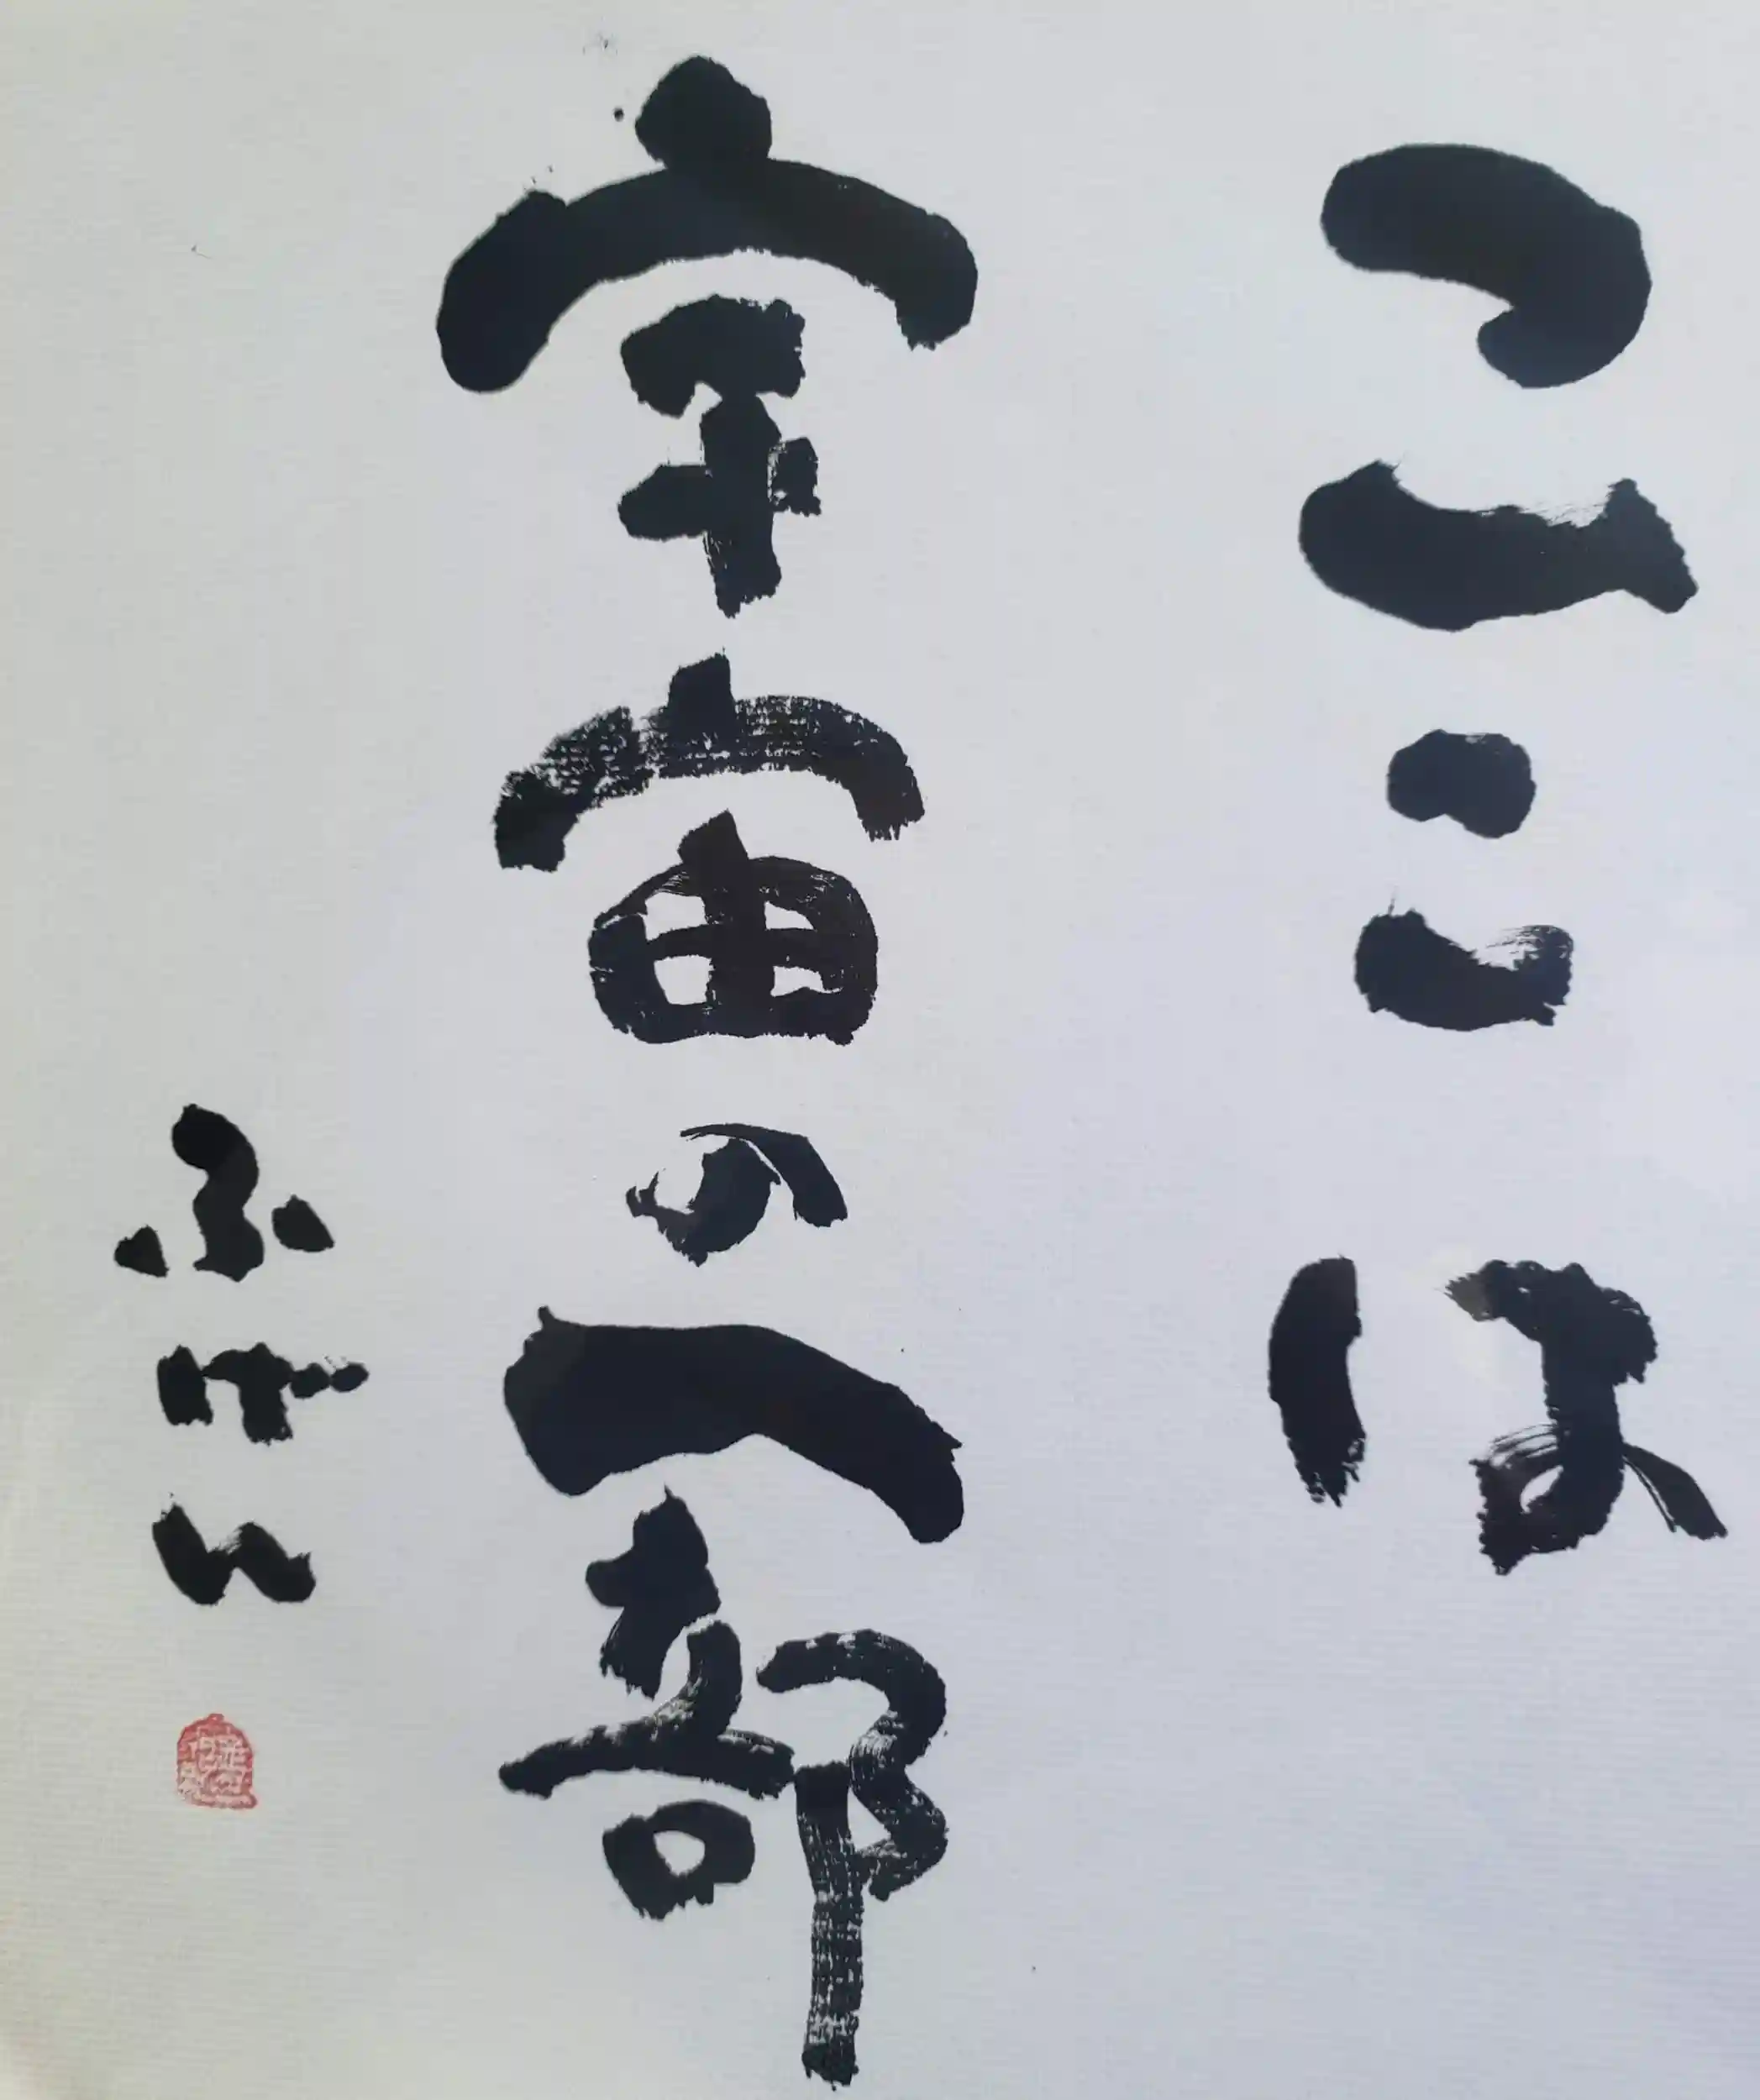 ここは
宇宙の一部
ふけい